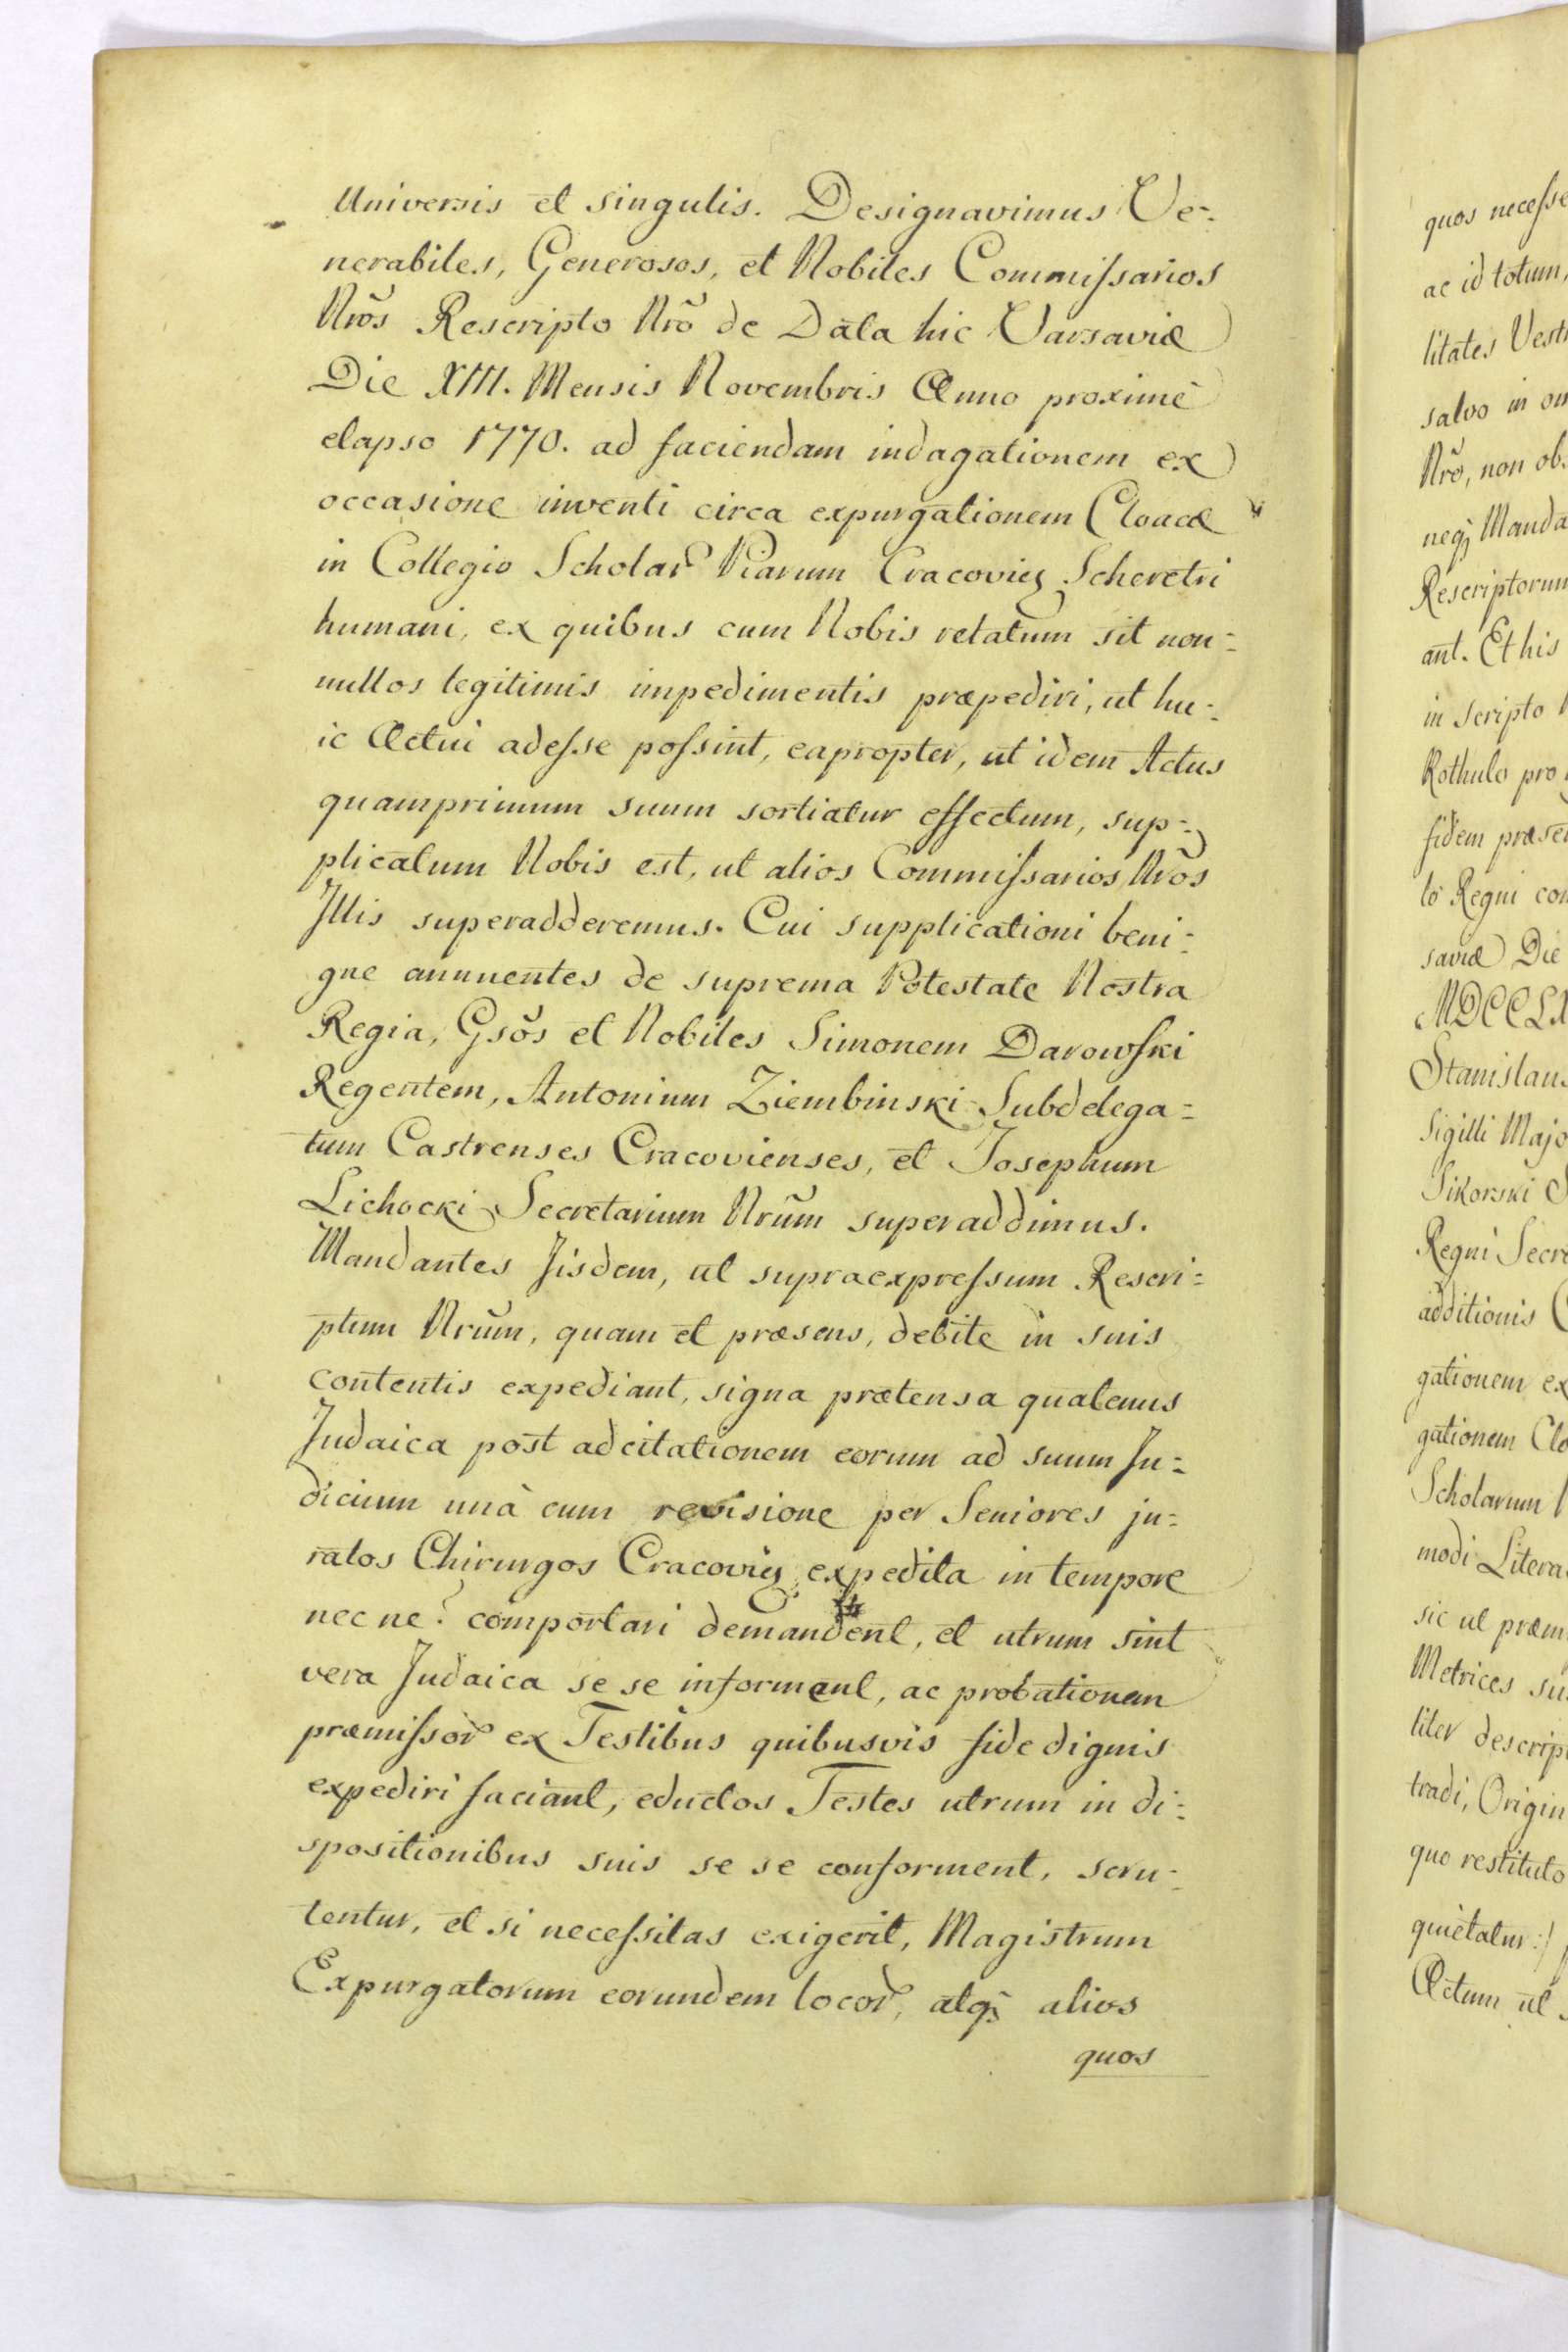 Universis et singulis. Designavimus Ve=
nerabiles, Generosos, et Nobiles Commiſsarios
Nrõs Rescripto Nrõ de Data hic Varsaviæ
Die XIII. Mensis Novembris Anno proximè
elapso 1770. ad faciendam indagationem ex
occasione inventi circa expurgationem Cloacæ
in Collegio Scholar Piarum Cracovię Scheretri
humani, ex quibus cum Nobis relatum sit non=
nullos legitimis impedimentis præpediri, ut hu=
ic Actui adeſse poſsint, eapropter, ut idem Actus
quamprimum suum sortiatur effectum, sup=
plicatum Nobis est, ut alios Commiſsarios Nrõs
Illis superadderemus. Cui supplicationi beni=
gne annuentes de suprema Potestate Nostra
Regia, Gsõs et Nobiles Simonem Darowſki
Regentem, Antonium Ziembinski Subdelega=
tum Castrenses Cracovienses, et Josephum
Lichocki Secretarium Nrũm superaddimus.
Mandantes Iisdem, ut supraexpreſsum Rescri=
ptum Nrũm, quam et præsens, debite in suis
contentis expediant, signa prætensa quatenus
Judaica post adcitationem eorum ad suum Ju=
dicium unà cum revisione per Seniores ju=
ratos Chirurgos Cracovię expedita in tempore
nec ne? comportari demandent, et utrum sint
vera Judaica se se informent, ac probationem
præmiſsor ex Testibus quibusvis fide dignis
expediri faciant, eductos Testes utrum in di=
spositionibus suis se se conforment, scru=
tentur, et si neceſsitas exigerit, Magistrum
Expurgatorum eorundem locor, atq; alios
quos
quos neceſse
ac id totum,
litates Vest
salvo in
Nrõ, non ob
neq; Manda
Rescriptorum
ant. Et his
in scripto
Rothulo pro
fidem præse
lo Regni con
saviæ Die
MDCCLX
Stanislau
Sigilli Majo
Sikorski
Regni Secre
additionis
gationem ex
gationem Clo
Scholarum
modi Litera
sic ut præm
Metrices su
liter descrip
tradi, Origin
quo restituto
quietatur:/
Actum ut